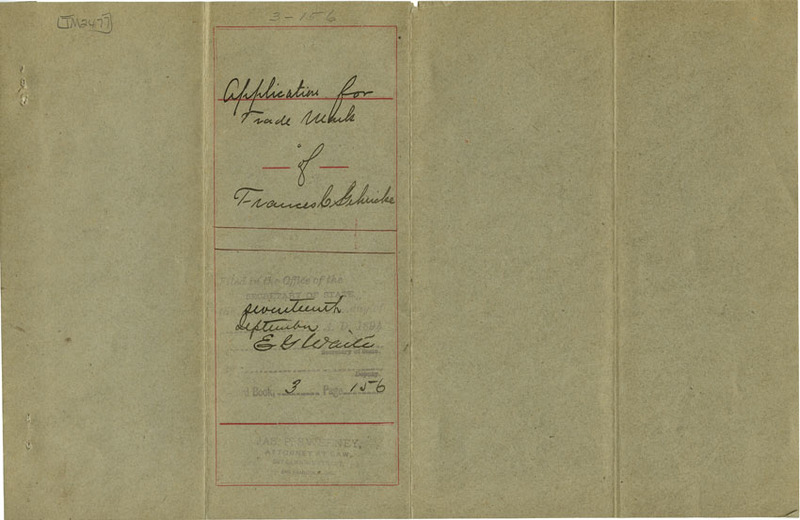 [TM2477]
3-156
Application for
Trade Mark
of
Frances C
Filed in the Office of the
SECRETARY OF STATE
seventeenth
September A.D. 1894
E G Waite
Secretary of State.
Deputy.
Book, 3 Page 156
JAS. P. SWEENEY,
ATTORNEY AT LAW,